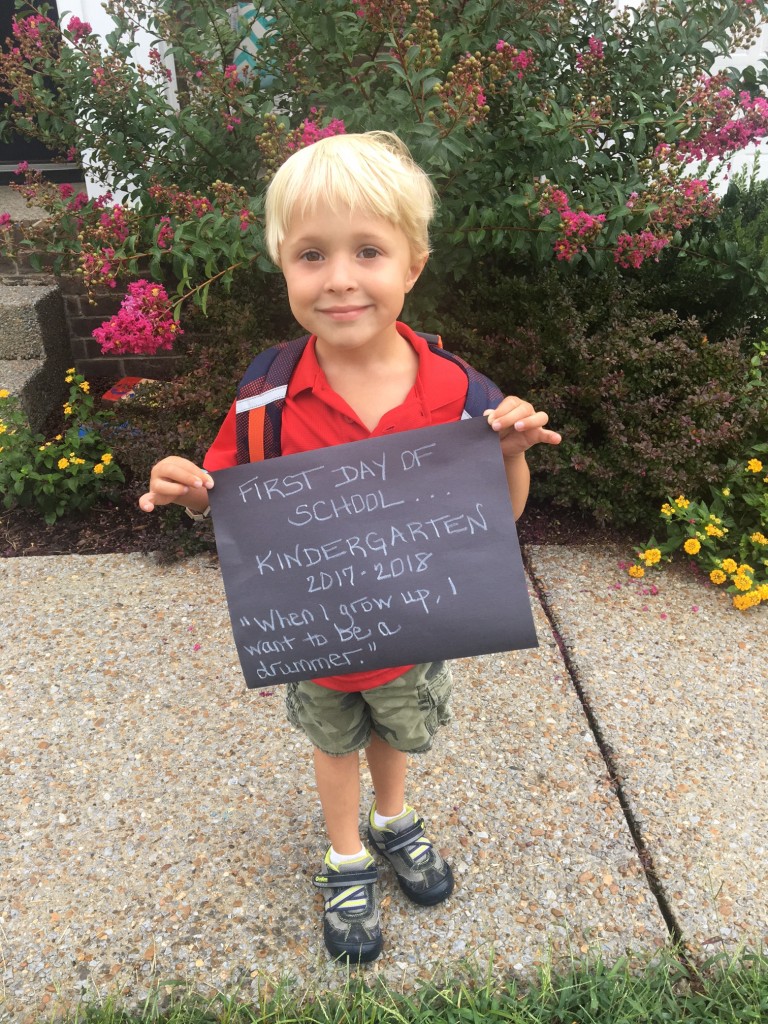 FIRST DAY OF
SCHOOL...
KINDERGARTEN
2017-2018
"When I grow up, I
want to be a
drummer."